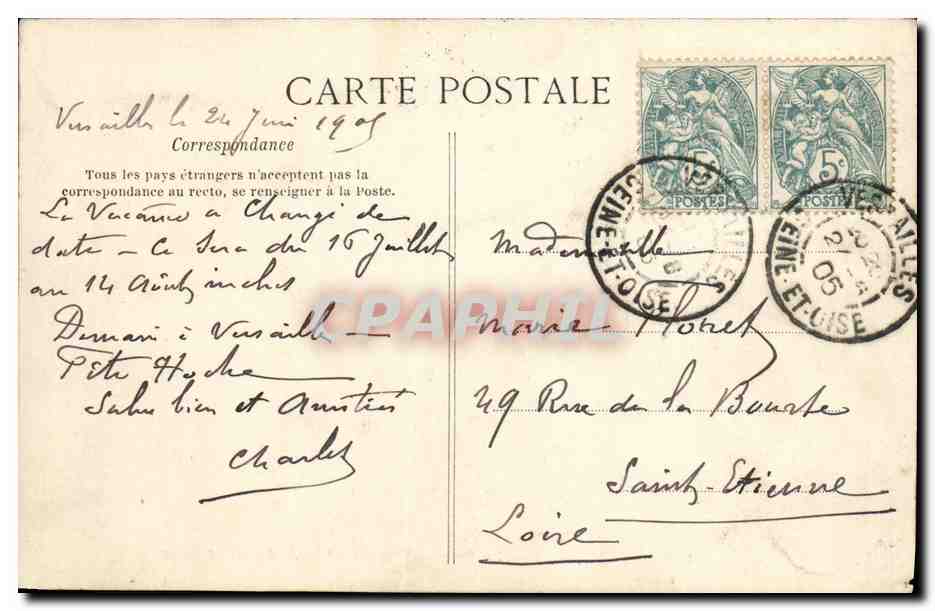 CARTE POSTALE
Versailles le 24 Juin 1905
Correspondance
Tous les pays étrangers n'acceptent pas la
correspondance au recto, se renseigner à la Poste.
La Vacance a Changé de
date - ce sera du 16 Juillet
au 14 Août inclus
Demain à Versailles -
Fête Hoche
Salue bien et Amitiés
Charles
Mademoiselle
Marie
49 Rue de la Bourse
Saint-Etienne
Loire
5c
POSTES
5c
POSTES
VERSAILLES
SEINE-ET-OISE
VERSAILLES
SEINE-ET-OISE
05
CPAPHIL